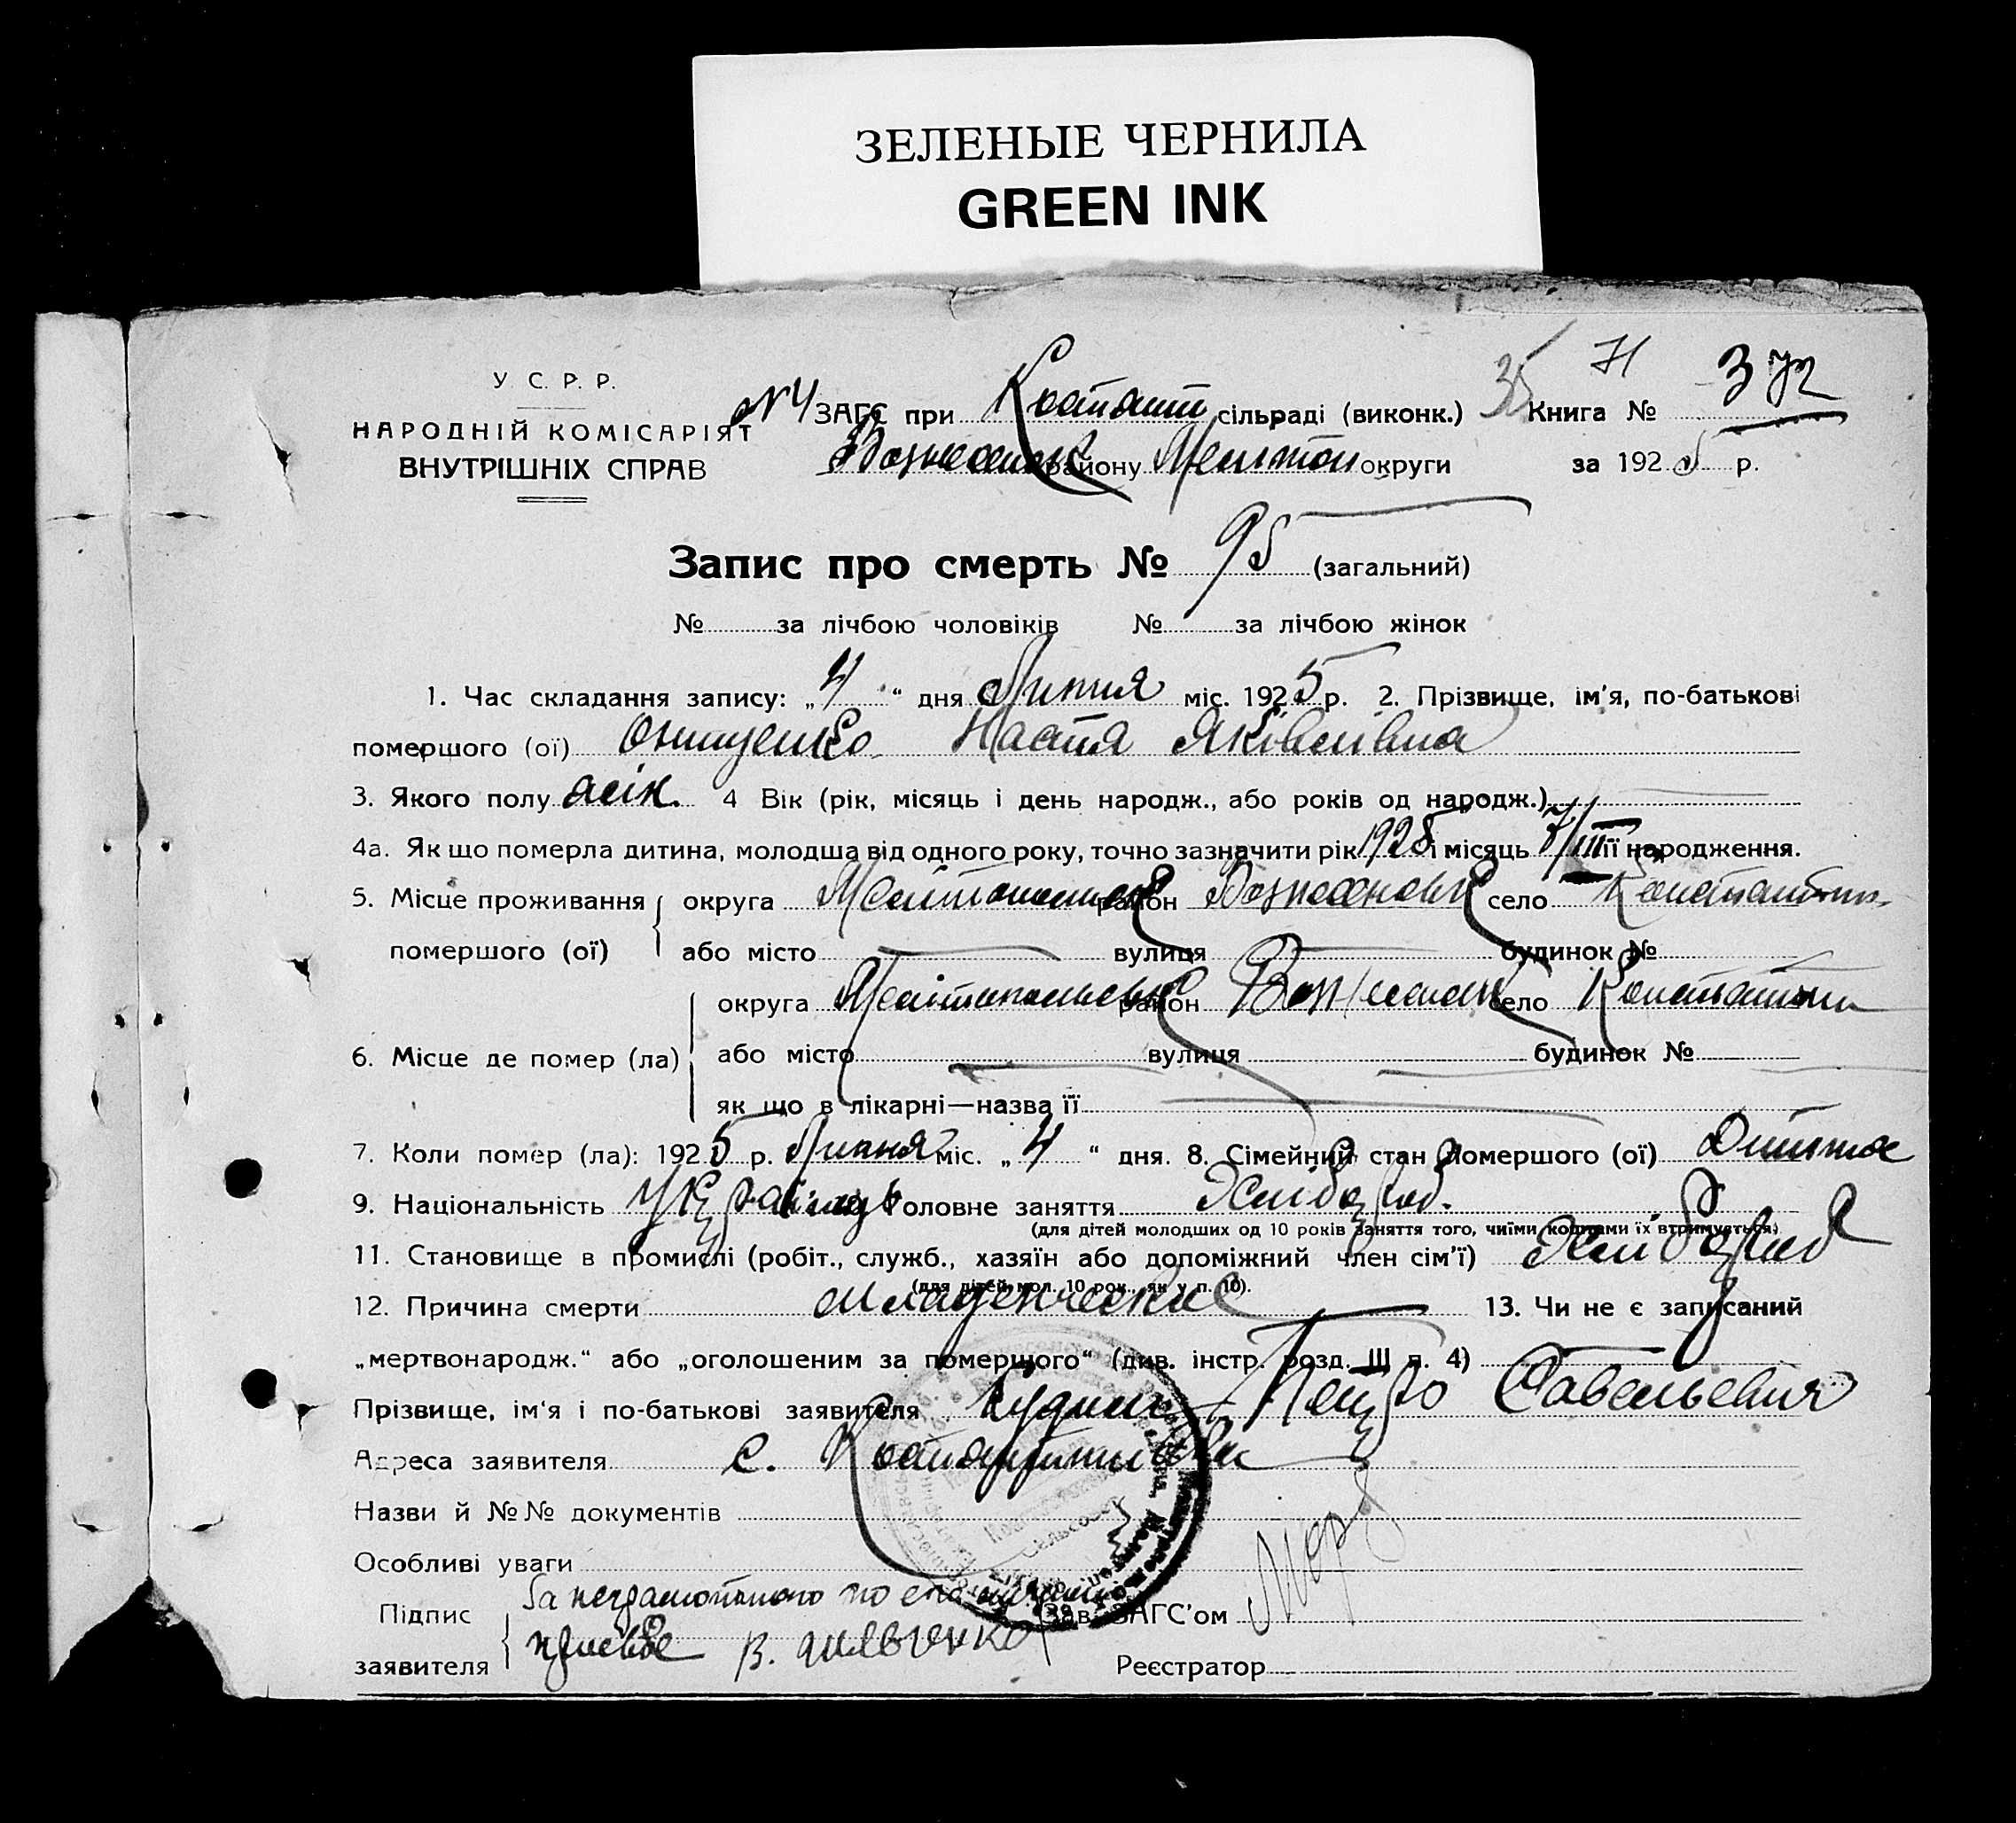 ЗЕЛЕНЫЕ ЧЕРНИЛА
GREEN INK
35 71 372
У. С. Р. Р.
НАРОДНІЙ КОМІСАРІЯТ
ВНУТРІШНІХ СПРАВ
№4 ЗАГС при сільраді (виконк.) Книга №
району округи за 1925 р.
Запис про смерть № 95 (загальний)
№ за лічбою чоловіків № за лічбою жінок
1. Час складання запису: „4“ дня Липня міс. 1925 р. 2. Прізвище, ім'я, по-батькові
помершого (ої) Онищенко Настя Яківлівна
3. Якого полу жін. 4 Вік (рік, місяць і день народж., або років од народж.)
4а. Як що померла дитина, молодша від одного року, точно зазначити рік 1925 і місяць 7/III її народження.
5. Місце проживання округа район село
помершого (ої) або місто вулиця будинок №
округа Мелітопольськ район село
6. Місце де помер (ла) або місто вулиця будинок №
як що в лікарні—назва її
7. Коли помер (ла): 1925 р. Липня міс. „4“ дня. 8. Сімейний стан помершого (ої) Дитина
9. Національність Головне заняття Хлібороб.
(для дітей молодших од 10 років заняття того, чиїми коштами їх втримується)
11. Становище в промислі (робіт., служб., хазяїн або допоміжний член сім'ї) Хлібороб
(для дітей мол. 10 рок., як у п. 10).
12. Причина смерти младенческая 13. Чи не є записаний
„мертвонародж.“ або „оголошеним за померщого“ (див. інстр. розд. III п. 4)
Прізвище, ім'я і по-батькові заявителя Петро Савельевич
Адреса заявителя с. Костантинівка
Назви й №№ документів
Особливі уваги
Підпис За неграмотного по его
заявителя В. Зав. ЗАГС'ом
Реєстратор